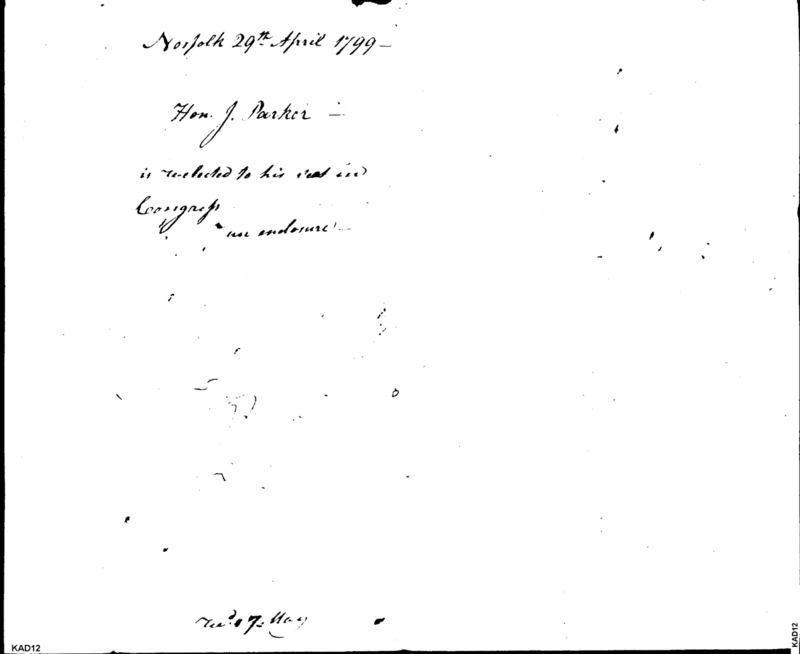 Norfolk 29th April 1799 –
Hon. J. Parker –
is reelected to his seat in
Congress
an enclosure –
Recd. 7 May
KAD12
KAD12